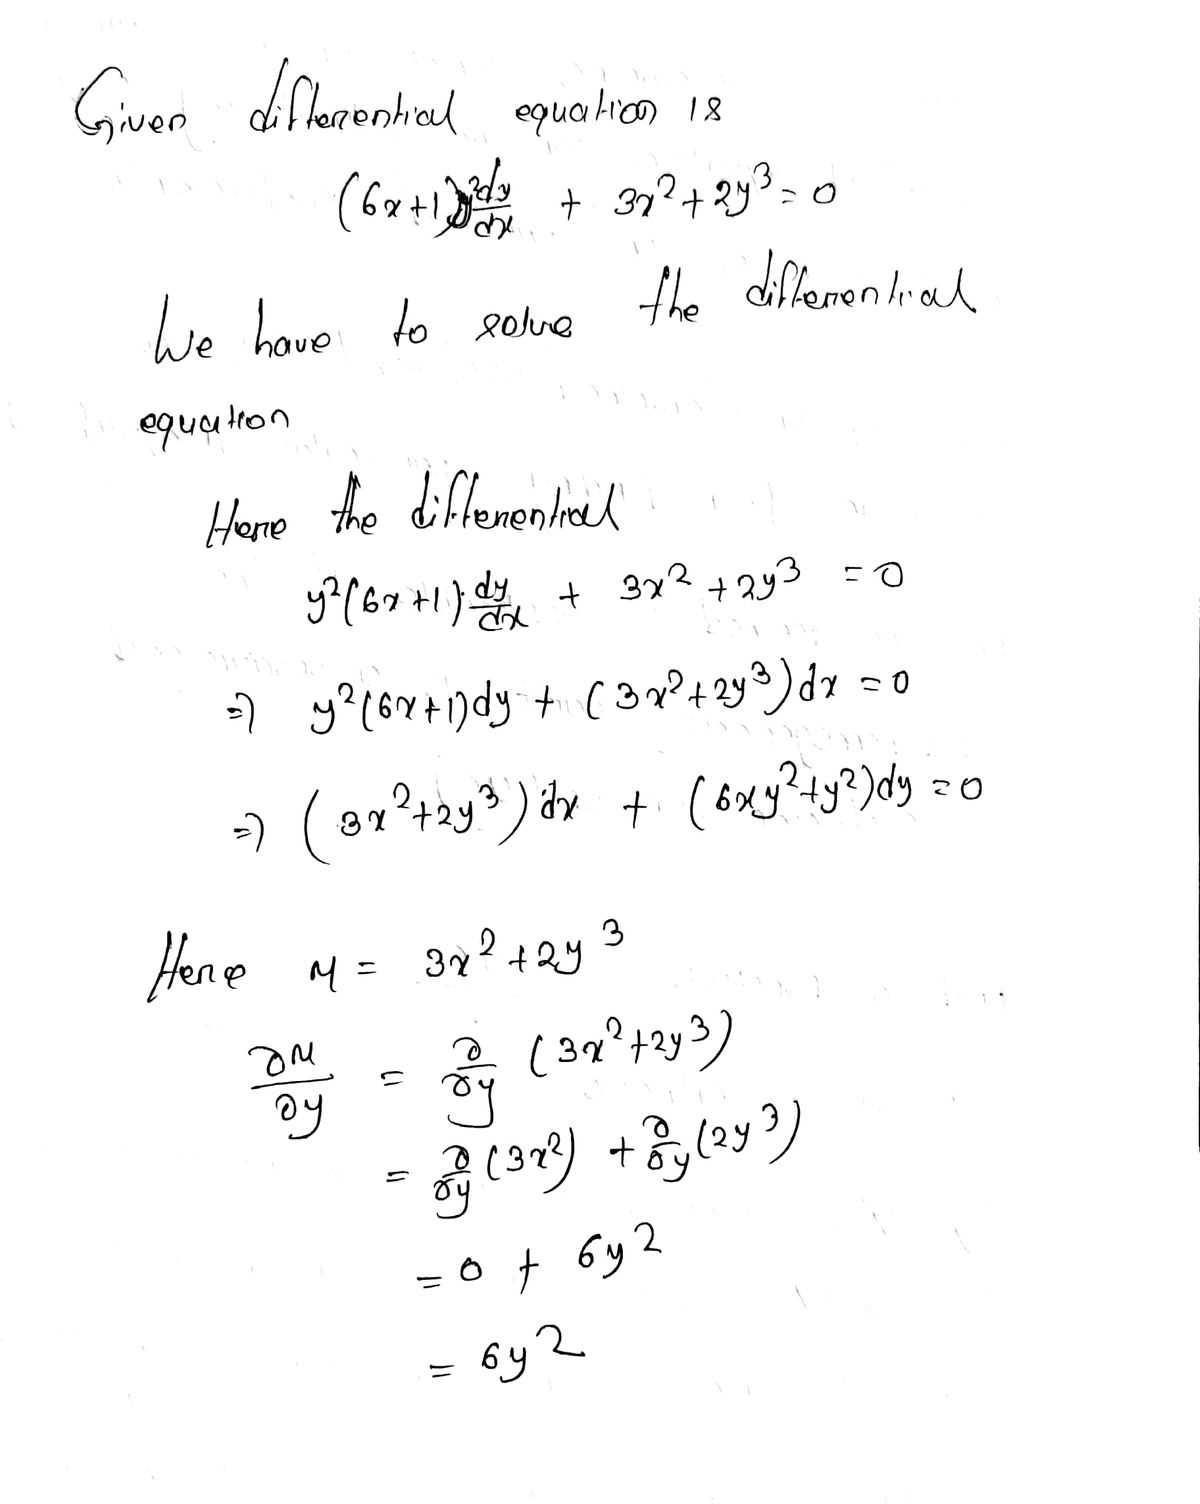 Given differential equation is
(6x+1)y²dy/dx + 3x²+2y³=0
We have to solve the differential
equation
Here the differential
y²(6x+1)·dy/dx + 3x²+2y³ =0
⇒ y²(6x+1)dy + (3x²+2y³)dx =0
⇒ (3x²+2y³)dx + (6xy²+y²)dy =0
Here M = 3x²+2y³
∂M/∂y = ∂/∂y (3x²+2y³)
= ∂/∂y (3x²) + ∂/∂y (2y³)
= 0 + 6y²
= 6y²